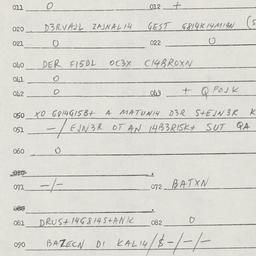 011 0 012 +
020 D3RVAJL ZAJNAL14 GEST G814K14M1AN (S
021 0 022 0
040 DER F15DL OC3X C14BROXN
041 0
042 0 043 + Q POJK
050 XO G814G15B+ A MATUN14 D3R S+EJN3R K
051 -/EJN3R OT AN 14B3R15K+ SUT QA
060 0
071 -/- 072 BATXN
081 DRUS+14G814S+ANK 082 0
090 BAZECN DI KAL14/$-/-/-